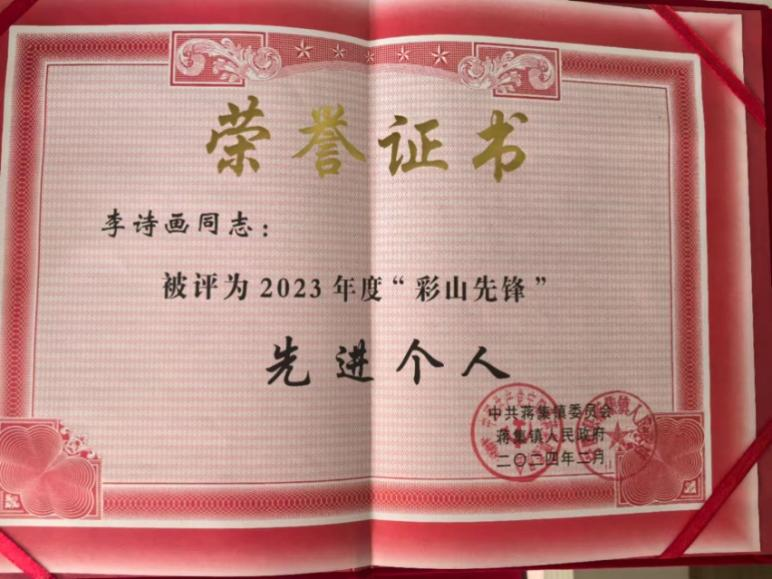 荣誉证书
李诗画同志：
被评为2023年度“彩山先锋”
先进个人
中共蒋集镇委员会
蒋集镇人民政府
二〇二四年二月